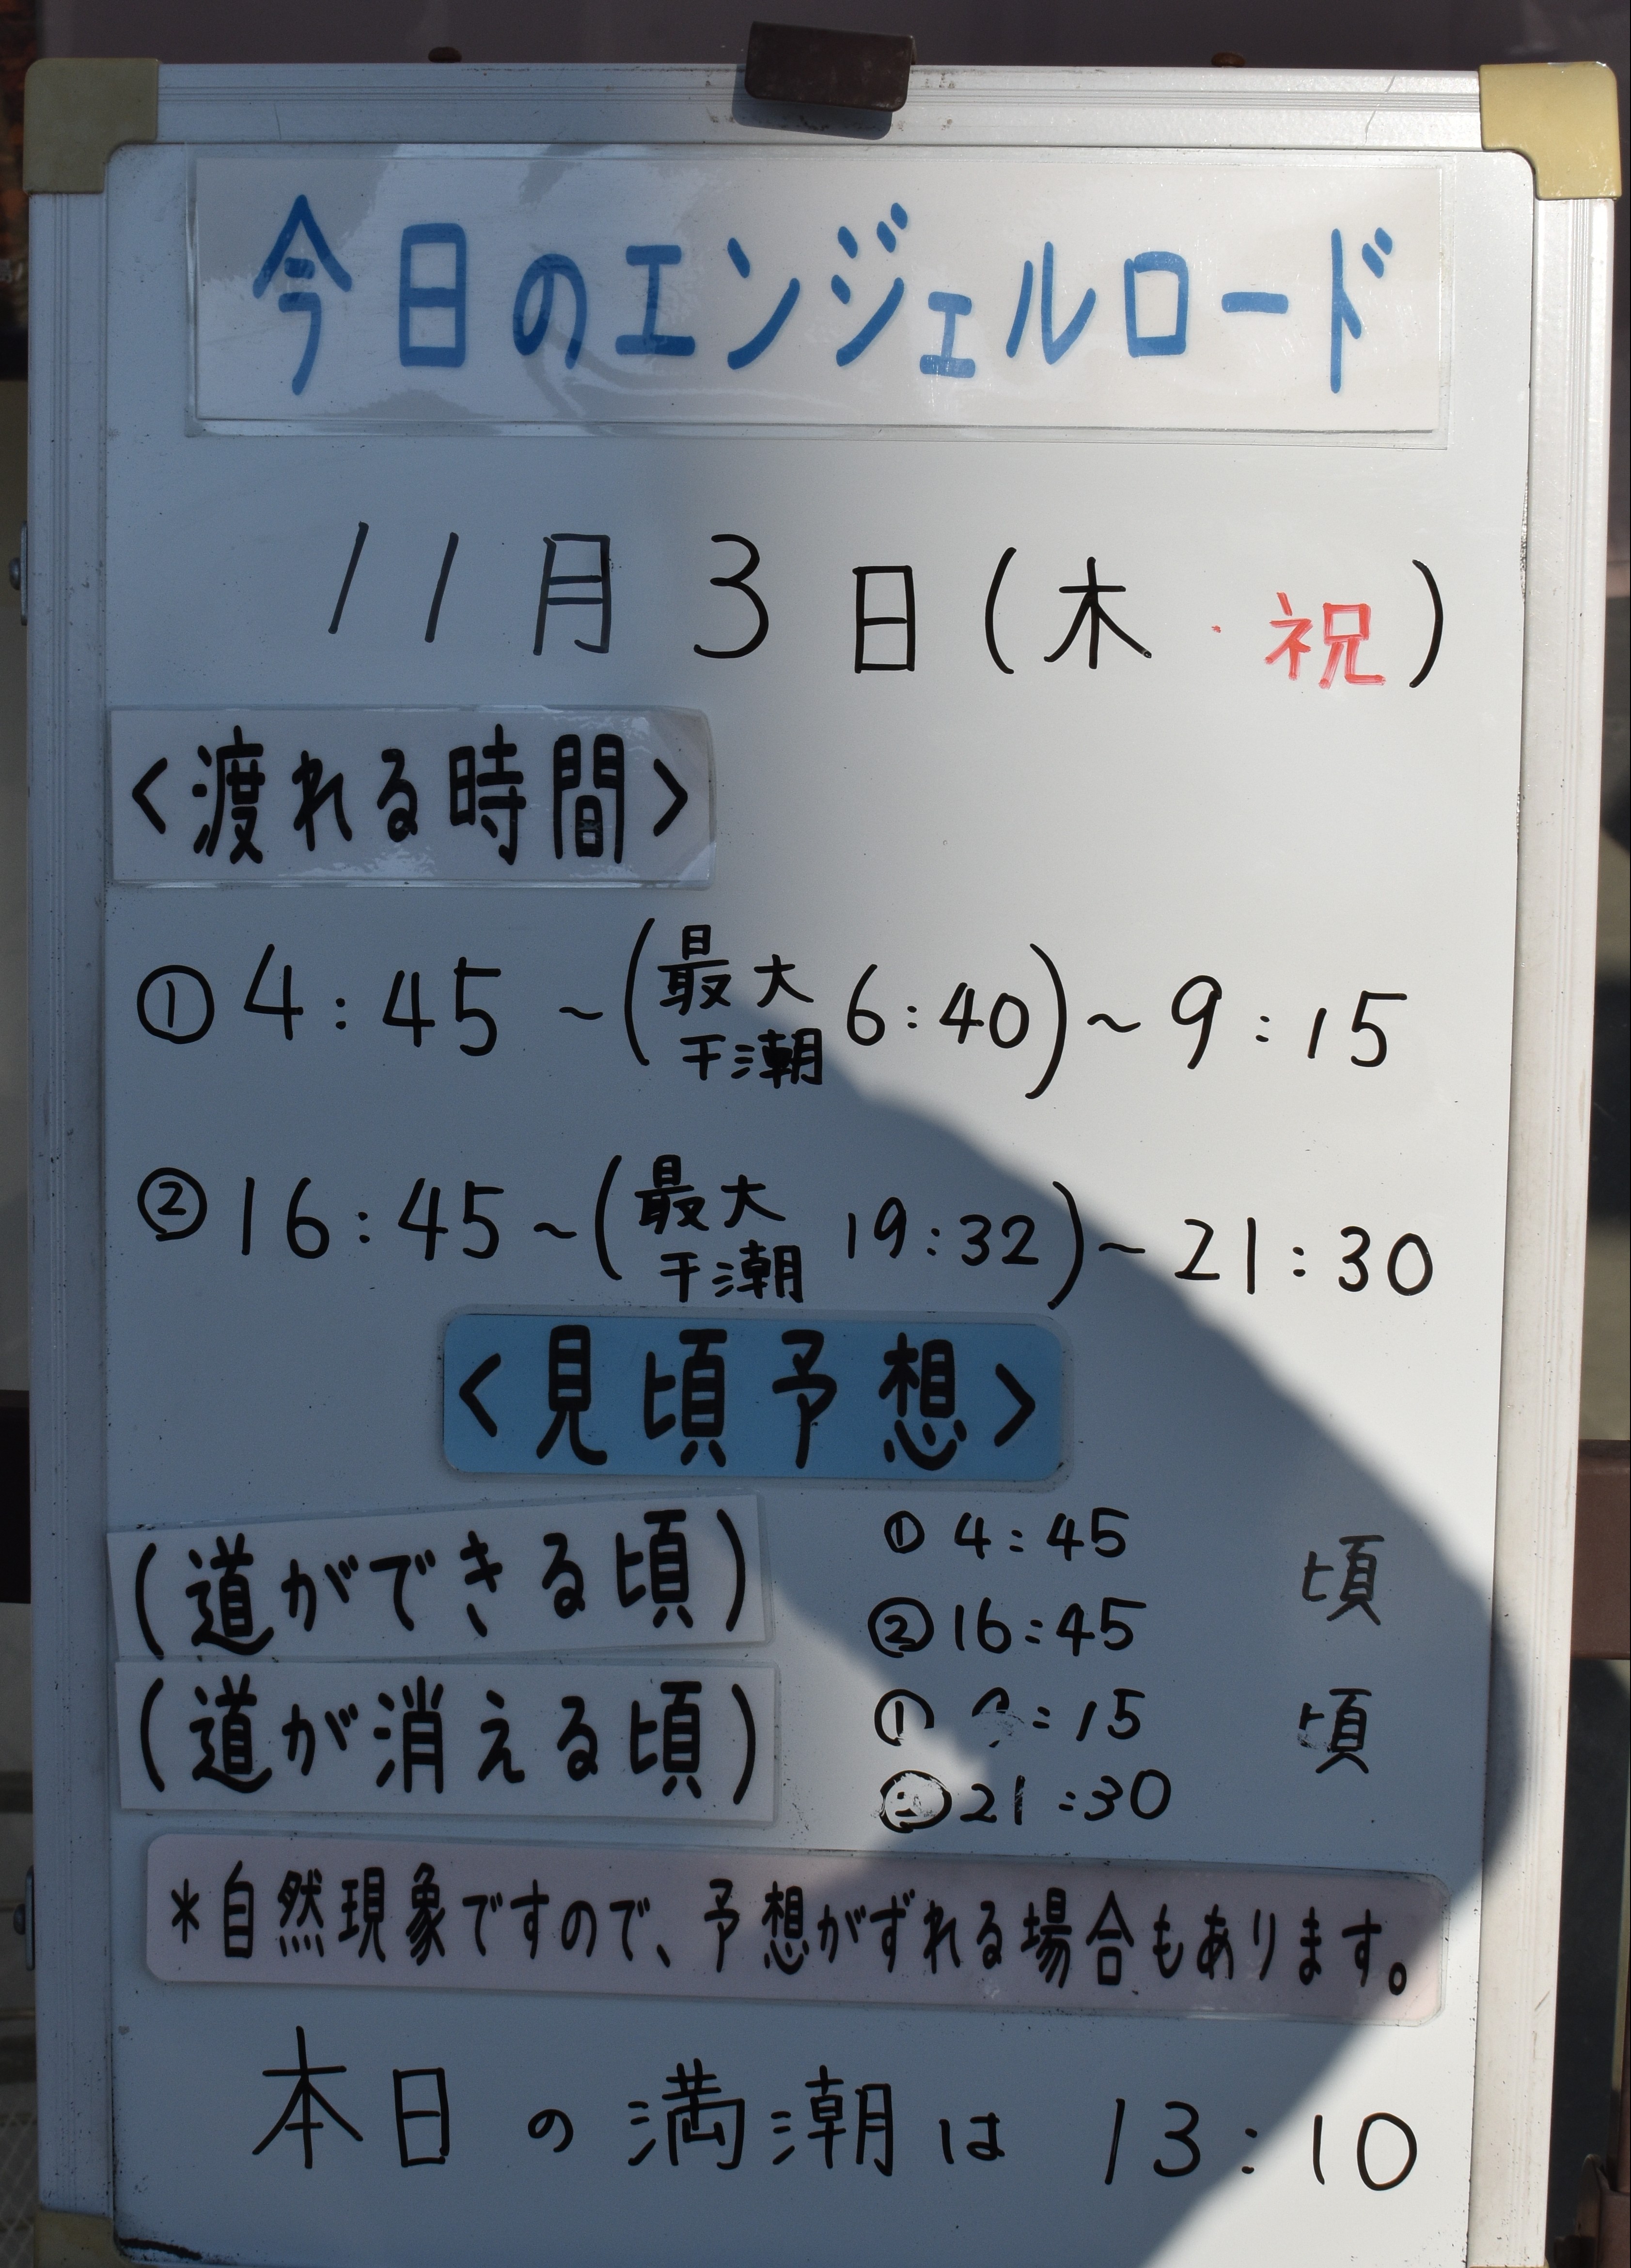 今日のエンジェルロード
11月3日(木・祝)
<渡れる時間>
① 4:45 ~(最大干潮 6:40)~ 9:15
② 16:45 ~(最大干潮 19:32)~ 21:30
<見頃予想>
(道ができる頃) ① 4:45 頃
② 16:45
(道が消える頃) ① :15 頃
② 21:30
*自然現象ですので、予想がずれる場合もあります。
本日の満潮は 13:10